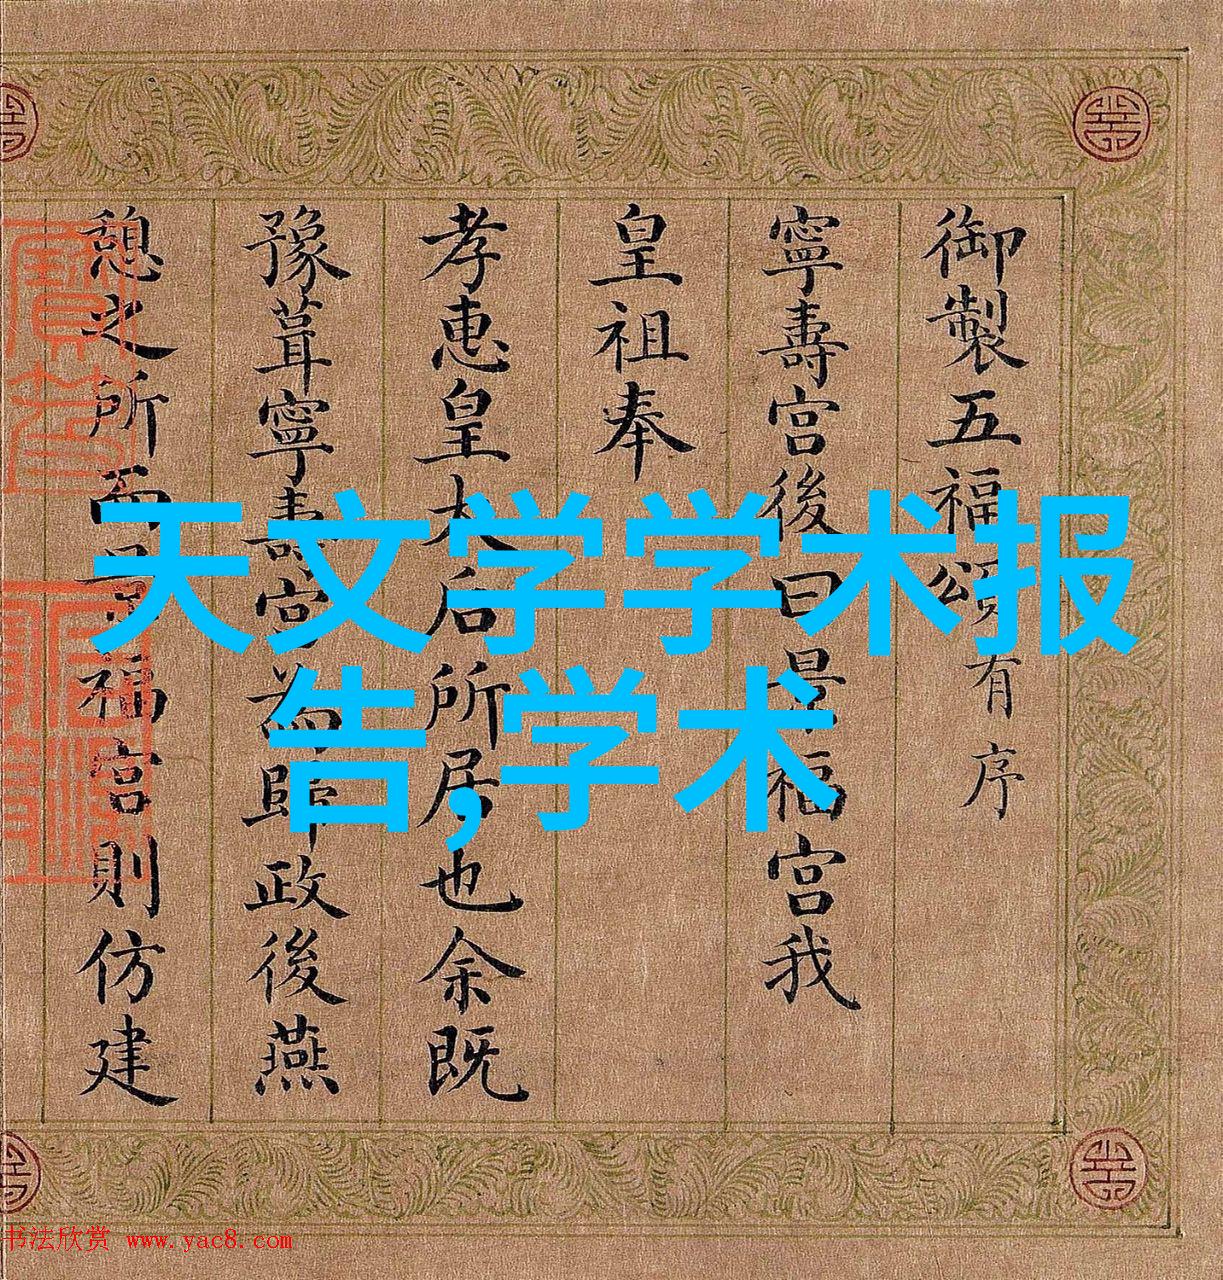 御製五福頌有序
寧壽宮後曰景福宮我
皇祖奉
孝惠皇太后所居也余既
豫葺寧壽宮為歸政後燕
憩之所而景福宮則仿建
天文学学术报
告,学术
书法欣赏 www.yac8.com